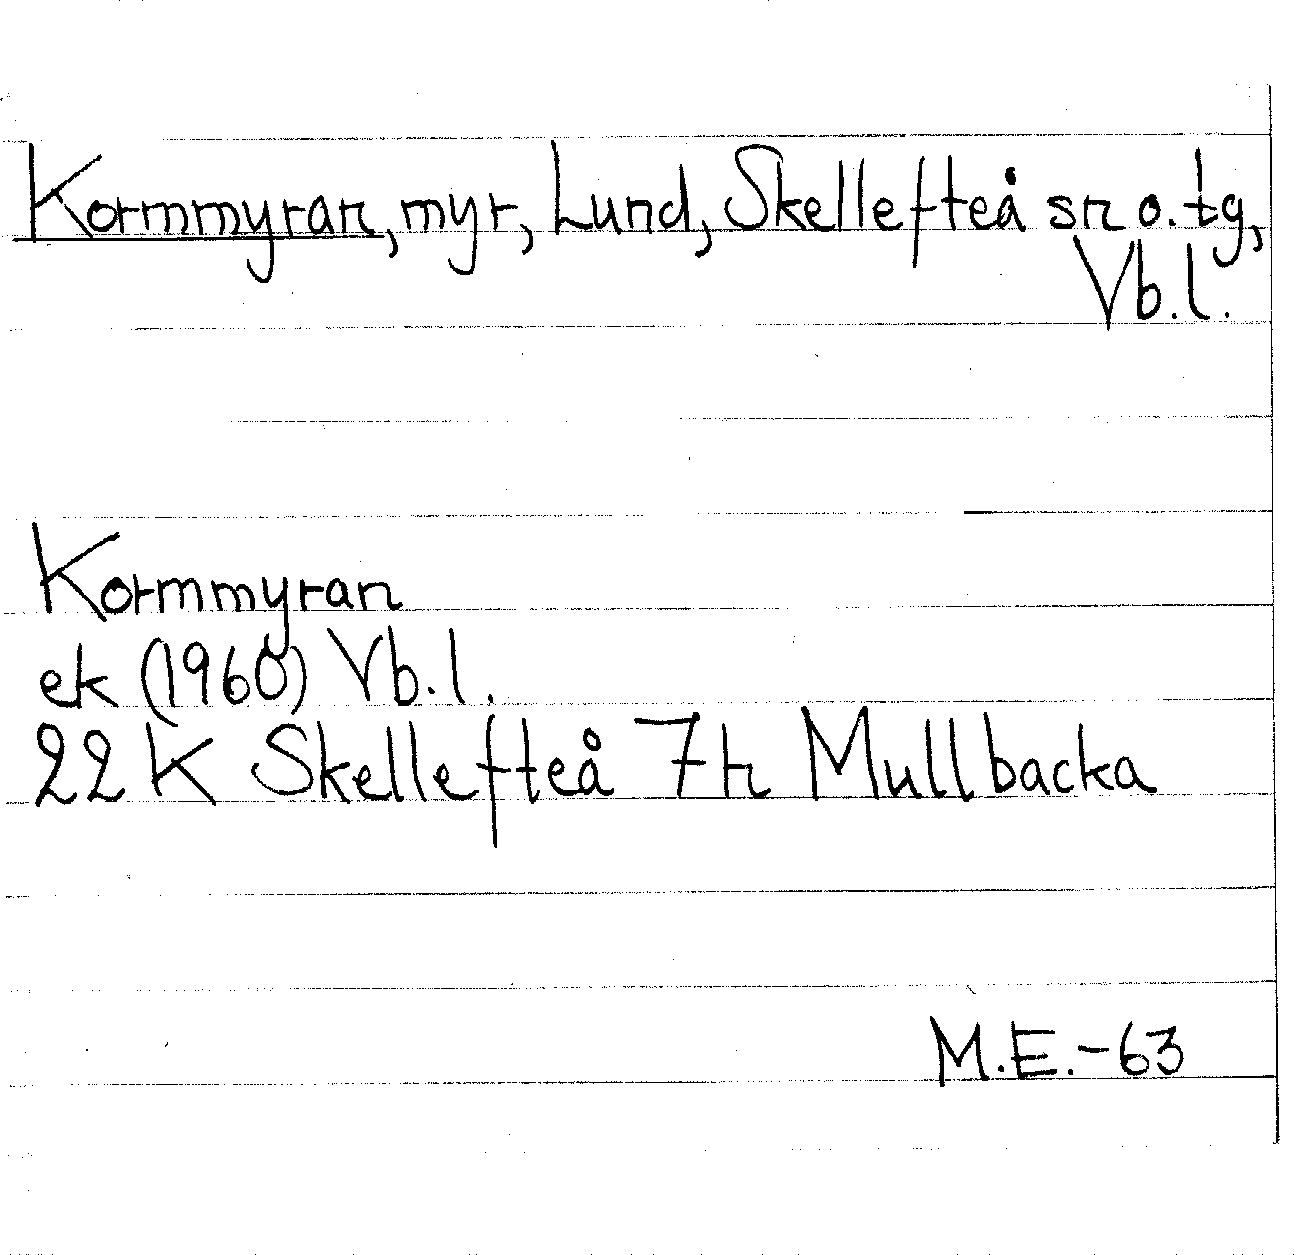 Kormmyran, myr, Lund, Skellefteå sn o. tg,
Vb.l.
Kormmyran
ek (1960) Vb.l.
22 K Skellefteå 7h Mullbacka
M.E.-63